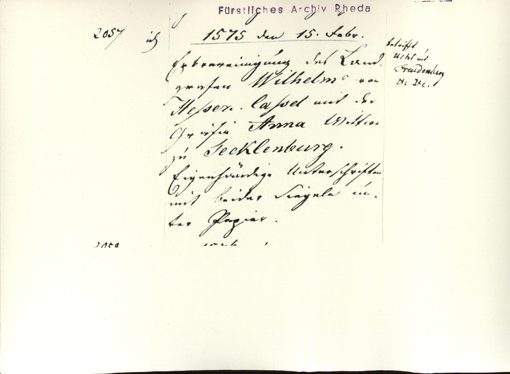 Fürstliches Archiv Rheda
2057
1575 den 15. Febr.
Erbvereinigung des Land
grafen Wilhelm von
Hessen-Cassel mit der
Gräfin Anna Wittwe
zu Tecklenburg.
Eigenhändige Unterschriften
mit beider Siegeln un-
ter Papier.
betrifft
Ucht und
Freudenberg